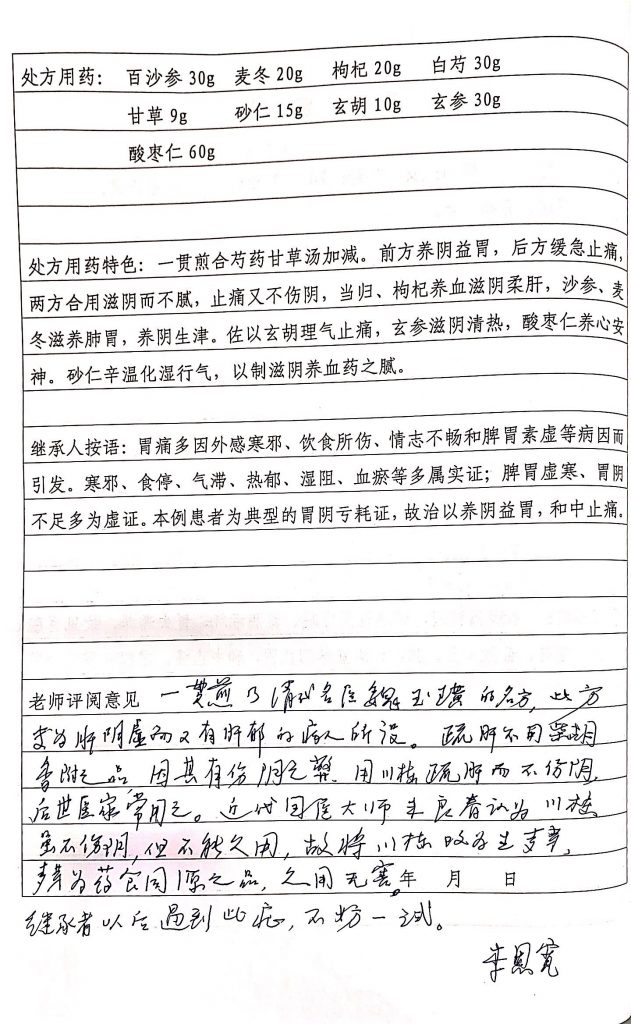 处方用药： 百沙参 30g 麦冬 20g 枸杞 20g 白芍 30g
甘草 9g 砂仁 15g 玄胡 10g 玄参 30g
酸枣仁 60g
处方用药特色：一贯煎合芍药甘草汤加减。前方养阴益胃，后方缓急止痛，
两方合用滋阴而不腻，止痛又不伤阴，当归、枸杞养血滋阴柔肝，沙参、麦
冬滋养肺胃，养阴生津。佐以玄胡理气止痛，玄参滋阴清热，酸枣仁养心安
神。砂仁辛温化湿行气，以制滋阴养血药之腻。
继承人按语：胃痛多因外感寒邪、饮食所伤、情志不畅和脾胃素虚等病因而
引发。寒邪、食停、气滞、热郁、湿阻、血瘀等多属实证；脾胃虚寒、胃阴
不足多为虚证。本例患者为典型的胃阴亏耗证，故治以养阴益胃，和中止痛。
老师评阅意见 一贯煎乃清代名医魏玉璜的名方，此方
为肝阴虚而又有肝郁的病人所设。疏肝不用柴胡
香附之品，因其有伤阴之弊，用川楝疏肝而不伤阴，
后世医家常用之。近代国医大师朱良春认为川楝
虽不伤阴，但不能久用，故将川楝改为生麦芽，
麦芽为药食同源之品，久用无害。 年 月 日
继承者以后遇到此症，不妨一试。
李恩宽